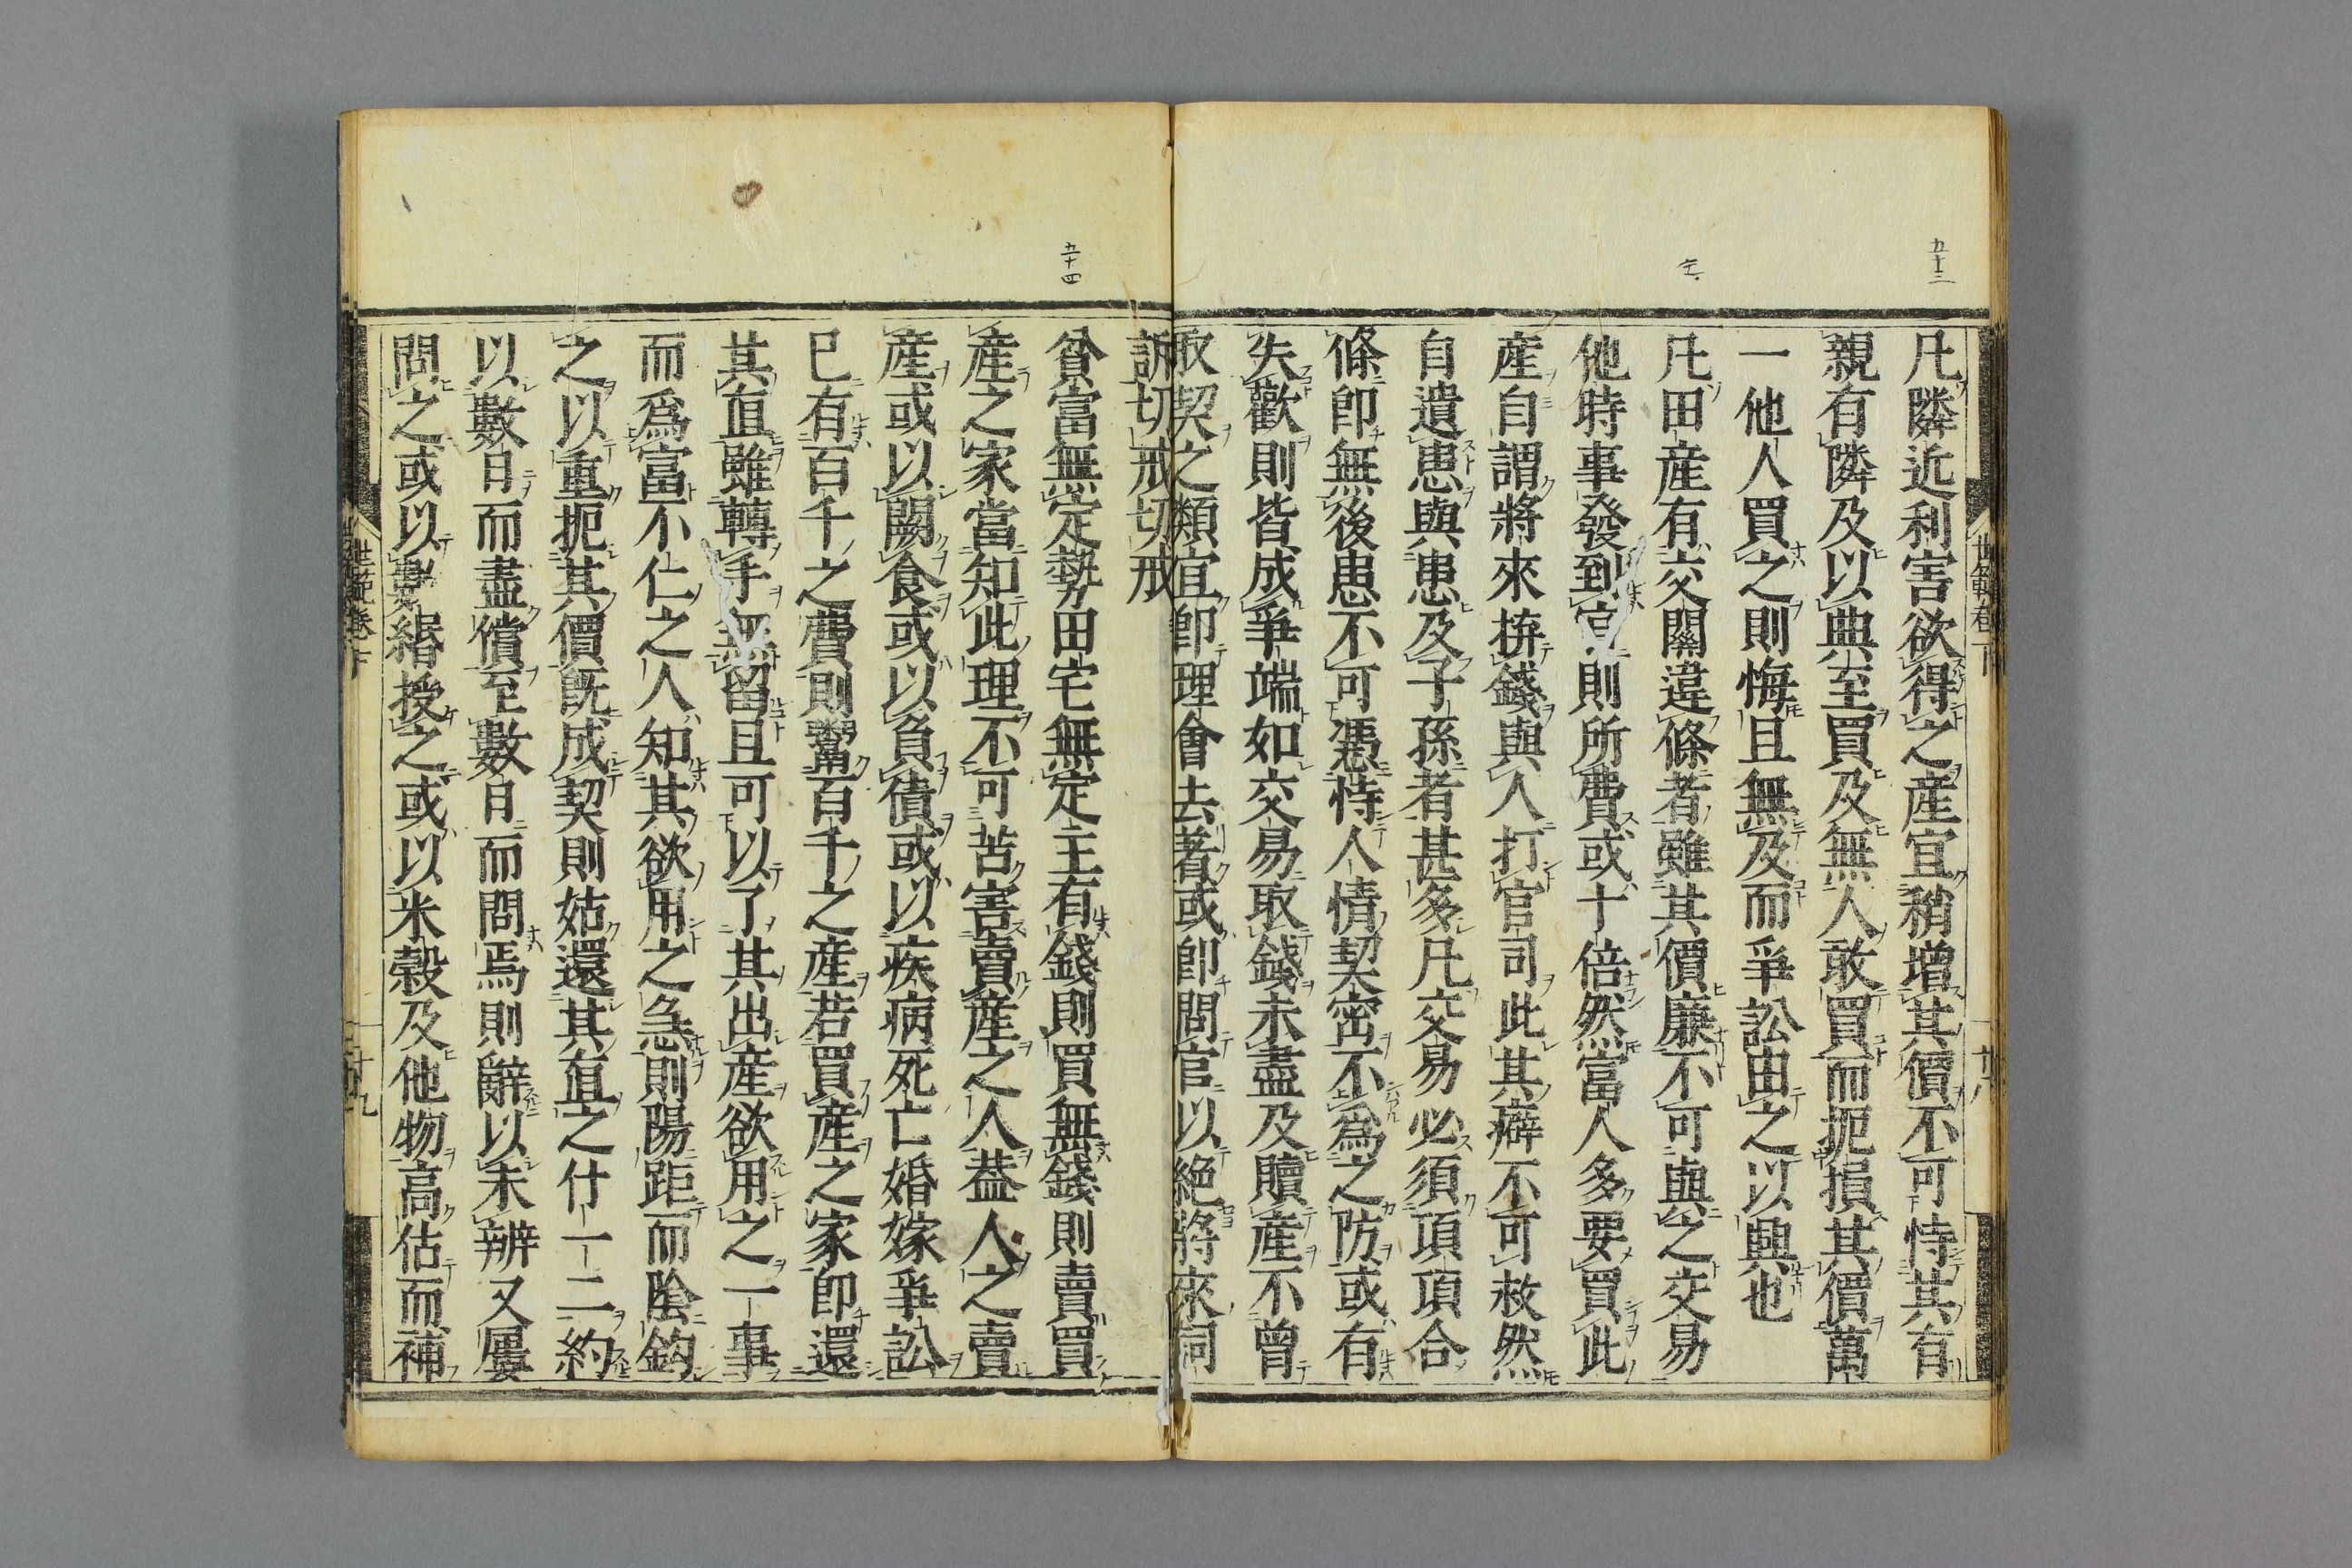 五十三
凡隣近利害欲得之産宜稍増其價不可恃其有
親有隣及以典至買及無人敢買而扼損其價萬
一他人買之則悔且無及而爭訟由之以興也
凡田産有交關違條者雖其價廉不可與之交易
他時事發到官則所費或十倍然富人多要買此
産自謂將來拚錢與人打官司此其癖不可救然
自遺患與患及子孫者甚多凡交易必須項項合
條即無後患不可憑恃人情契密不為之防或有
失歡則皆成爭端如交易取錢未盡及贖産不曾
取契之類宜即理會去著或即問官以絶將來詞
訴切戒切戒
五十四
貧富無定勢田宅無定主有錢則買無錢則賣買
産之家當知此理不可苦害賣産之人葢人之賣
産或以闕食或以負債或以疾病死亡婚嫁爭訟
已有百千之費則鬻百千之産若買産之家即還
其直雖轉手無留且可以了其出産欲用之一事
而爲富不仁之人知其欲用之急則陽距而陰鈎
之以重扼其價既成契則姑還其直之什一二約
以數日而盡償至數日而問焉則辭以未辨又屢
問之或以數緡授之或以米榖及他物高估而補
世範卷下
廿九